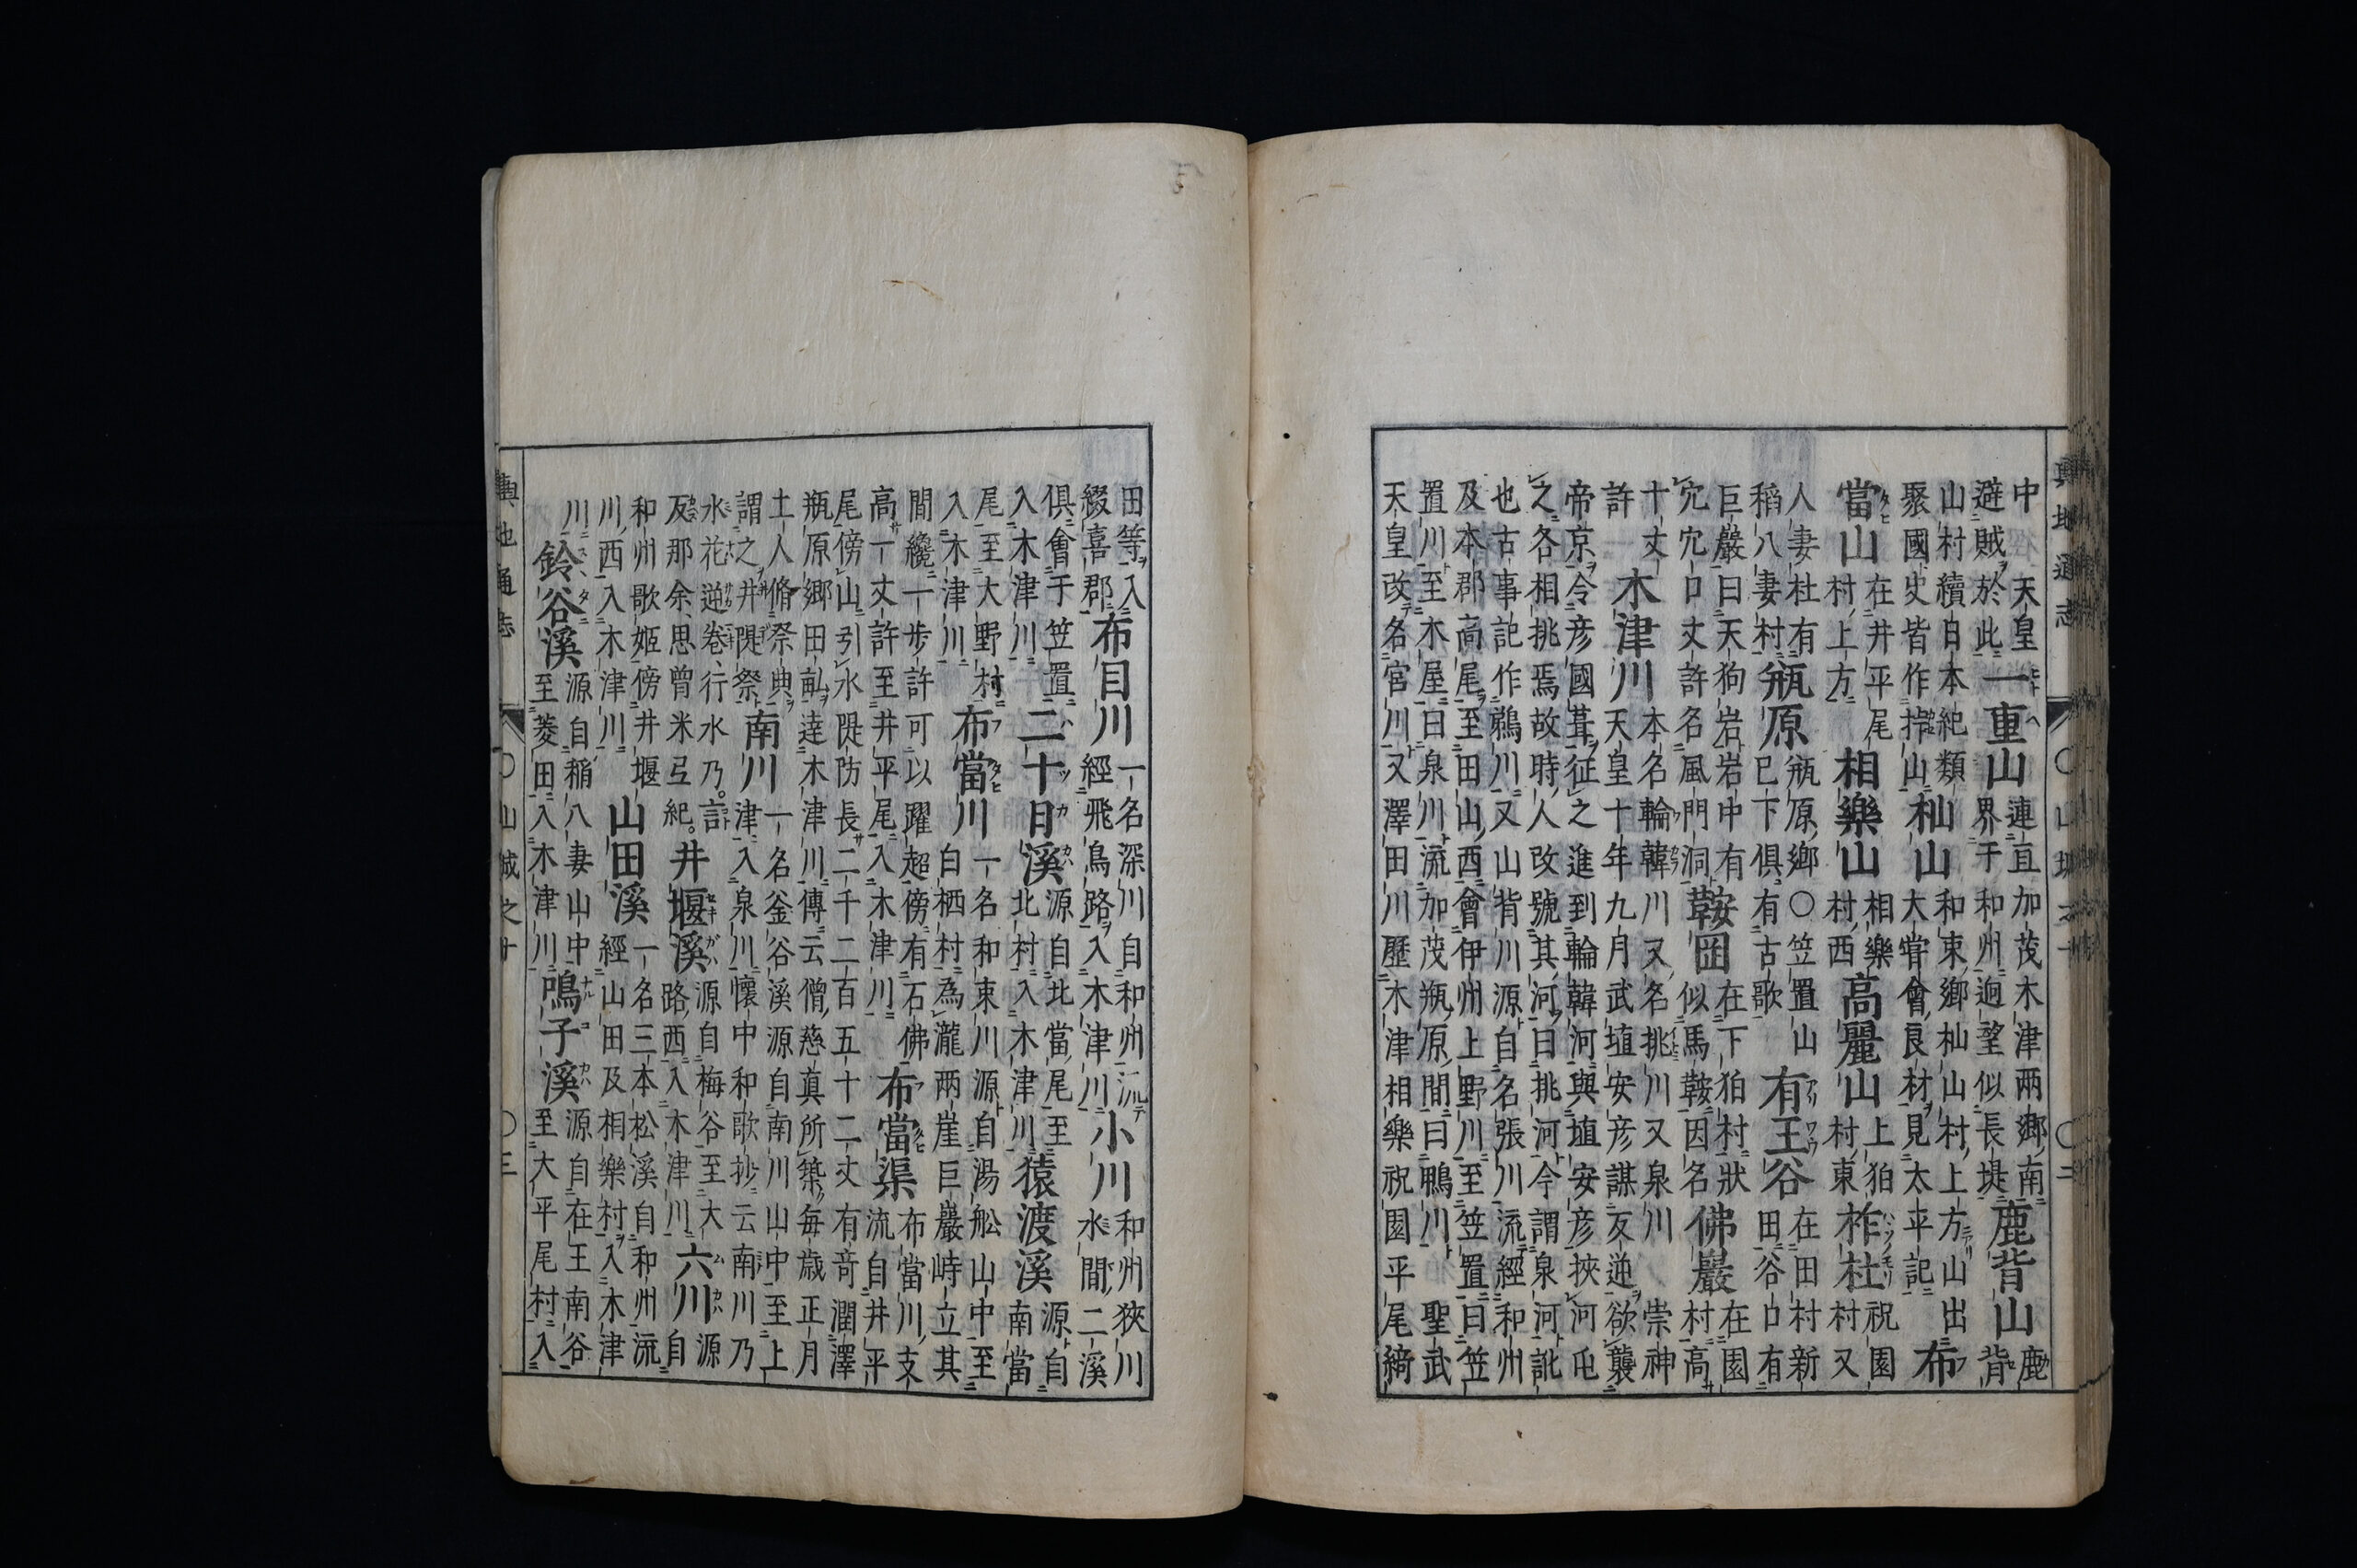 輿地通志 〇山城之十 〇二
中天皇避賊於此 一重山 連亘加茂木津兩鄉南界于和州迥望似長堤 鹿背山 鹿背
山村續日本紀類聚國史皆作 山 杣山 和東鄉杣山村上方山出大嘗會良材見太平記 布
當山 在井平尾村上方 相樂山 相樂村西 高麗山 上狛村東 柞杜 祝園村又
人妻杜有稻八妻村 瓶原 瓶原鄉〇笠置山已下俱有古歌 有王谷 在田村新田谷口有
巨巖曰天狗岩岩中有穴穴口丈許名風門洞 鞍岡 在下狛村狀似馬鞍因名 佛巖 在園村高
十丈許 木津川 本名輪韓川又名挑川又泉川崇神天皇十年九月武埴安彥謀反逆欲襲
帝京令彥國葺征之進到輪韓河與埴安彥挾河屯之各相挑焉故時人改號其河曰挑河今謂泉河訛
也古事記作鵜川又山背川源自名張川流經和州及本郡高尾至田山西會伊州上野川至笠置曰笠
置川至木屋曰泉川流加茂瓶原間曰鴨川聖武天皇改名宮川又澤田川歷木津相樂祝園平尾綺
田等入綴喜郡 布目川 一名深川自和州流經飛鳥路入木津川 小川 和州狹川水間二溪
俱會于笠置入木津川 二十日溪 源自北當尾至北村入木津川 猿渡溪 源自南當
尾至大野村入木津川 布當川 一名和東川源自湯舩山中至白栖村為瀧兩崖巨巖峙立其
間纔一步許可以躍超傍有石佛高一丈許至井平尾入木津川 布當渠 布當川支流自井平
尾傍山引水隄防長二千二百五十二丈有奇潤澤瓶原鄉田畝達木津川傳云僧慈真所築每歲正月
土人脩祭典謂之井隄祭 南川 一名釜谷溪源自南川山中至上津入泉川懷中和歌抄云南川乃
水花逆卷行水乃言反那余思曾米弖紀 井堰溪 源自梅谷至大路西入木津川 六川 源自
和州歌姬傍井堰川西入木津川 山田溪 一名三本松溪自和州流經山田及相樂村入木津
川 鈴谷溪 源自稻八妻山中至菱田入木津川 鳴子溪 源自在王南谷至大平尾村入
輿地通志 〇山城之十 〇三